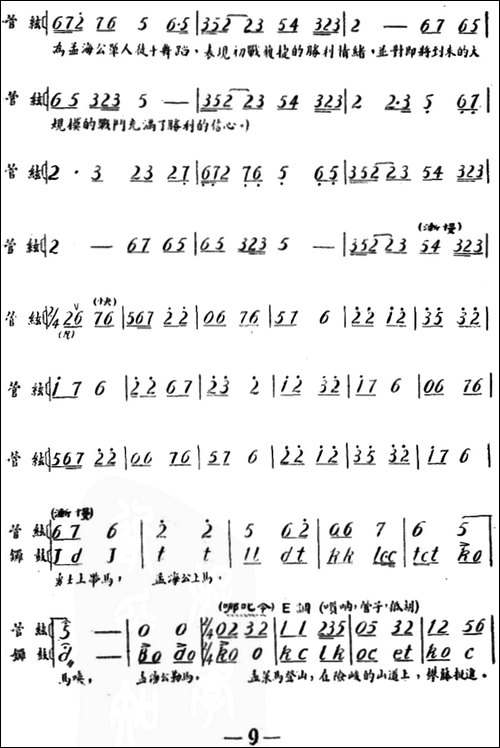 管 絃 672 76 5 6·5 | 352 23 54 323 | 2 — 67 65 |
為孟海公軍人後十舞蹈，表現初戰獲捷的勝利情緒，並對即將到來的大
管 絃 65 323 5 — | 352 23 54 323 | 2 2·3 5 67 |
規模的戰鬥充滿了勝利的信心。)
管 絃 2 · 3 23 27 | 672 76 5 65 | 352 23 54 323 |
(漸慢)
管 絃 2 — 67 65 | 65 323 5 — | 352 23 54 323 |
(快)
管 絃 2/4 26 76 | 567 22 | 06 76 | 57 6 | 22 12 | 35 32 |
管 絃 17 6 | 22 67 | 23 2 | 12 32 | 17 6 | 06 76 |
管 絃 567 22 | 06 76 | 57 6 | 22 12 | 35 32 | 17 6 |
(漸慢)
管 絃 67 6 | 2 2 | 5 62 | 06 7 | 6 5 |
鑼 鼓 Id J | t t | ll dt | kk lcc | tct ko |
勇士上帶馬， 孟海公上馬，
(哪叱令) E調 (嗩吶，管子，低胡)
管 絃 5 — | 0 0 | 2/4 02 32 | 11 235 | 05 32 | 12 56 |
鑼 鼓 d — | do do | ko 0 | kc lk | oc et | ko c |
馬嘶， 孟海公勒馬， 孟策馬登山，在險峻的山道上，攀藤執進。
— 9 —